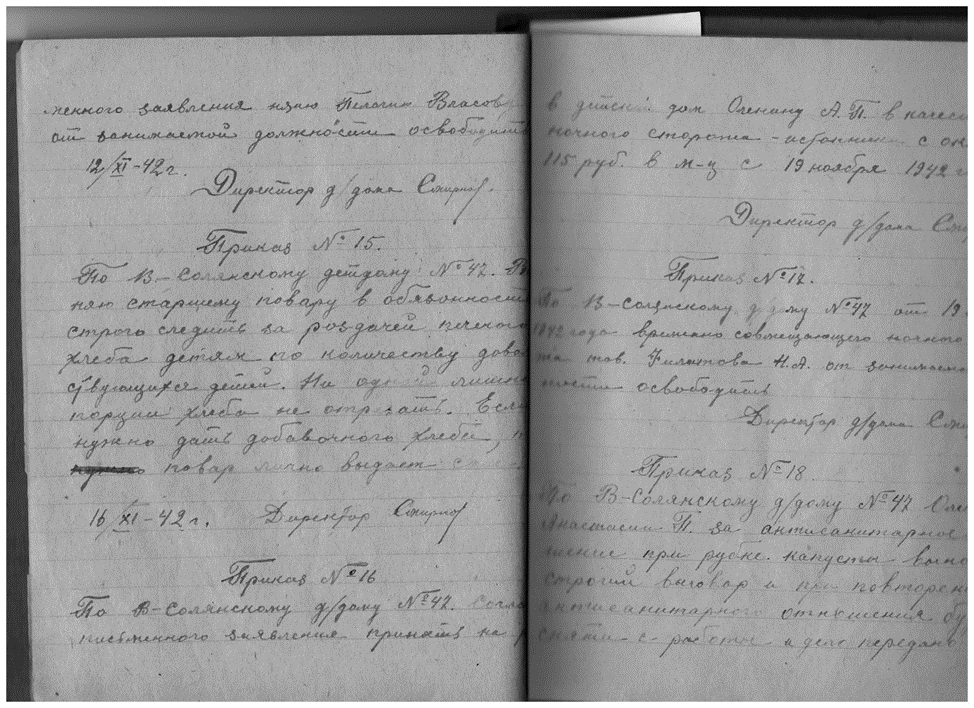 менного заявления няню Пелагию Власову
от занимаемой должности освободить
12/XI-42 г.
Директор д/дома Смирнов
Приказ № 15.
По В-Солянскому детдому № 47.
няю старшему повару в обязонности
строго следить за роздачей печеного
хлеба детям по количеству
ствующихся детей. Ни одной лишней
порции хлеба не отрезать. Если
нужно дать добавочного хлеба,
повар лично выдает
16/XI-42 г. Директор Смирнов
Приказ № 16
По В-Солянскому д/дому № 47.
письменного заявления принять на
в детский дом Оленину А.П. в качес
ночного сторожа - с ок
115 руб. в м-ц с 19 ноября 1942 г
Директор д/дома
Приказ № 17.
По В-Солянскому д/дому № 47 от 19
1942 года временно совмещающего ночного
та тов. Филатова Н.А. от занимаемо
ности освободить
Директор д/дома
Приказ № 18.
По В-Солянскому д/дому № 47
Анастасии П. за антисанитарное
шение при рубке капусты
строгий выговор и при повторен
антисанитарного отношения
снята с работы и дело передано